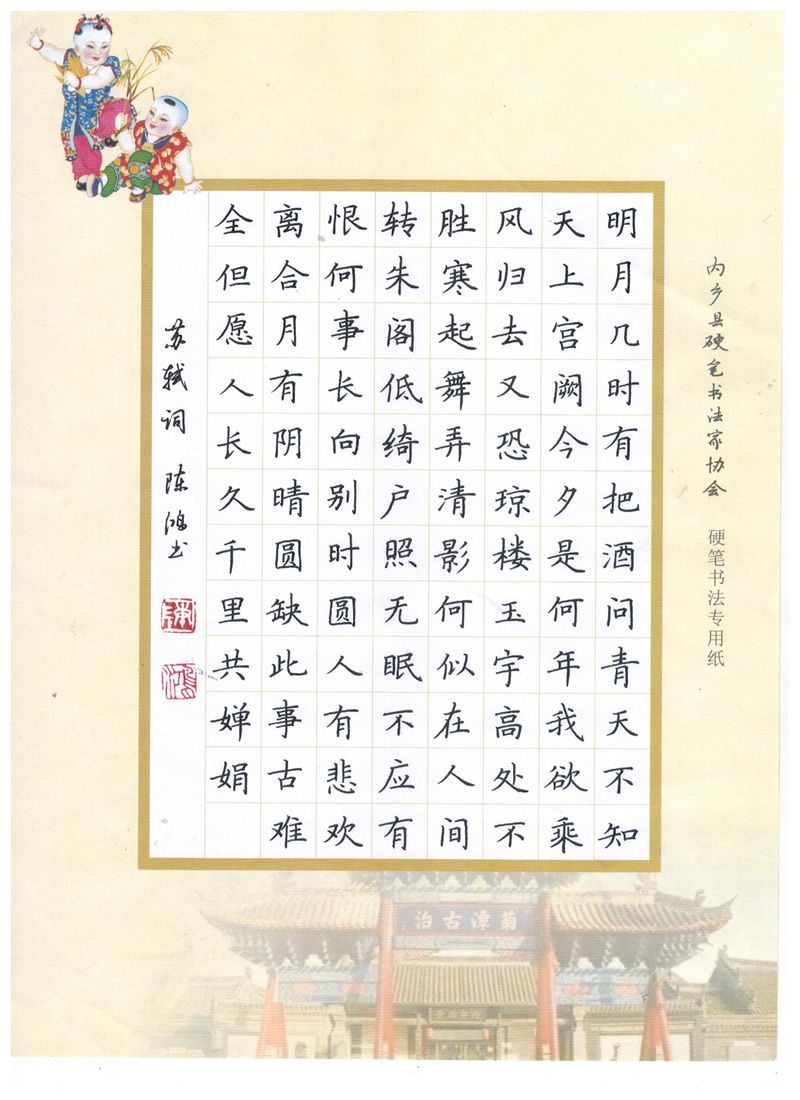 内乡县硬笔书法家协会 硬笔书法专用纸
明月几时有把酒问青天不知
天上宫阙今夕是何年我欲乘
风归去又恐琼楼玉宇高处不
胜寒起舞弄清影何似在人间
转朱阁低绮户照无眠不应有
恨何事长向别时圆人有悲欢
离合月有阴晴圆缺此事古难
全但愿人长久千里共婵娟
苏轼词 陈鸿书
陈
鸿
菊潭古治